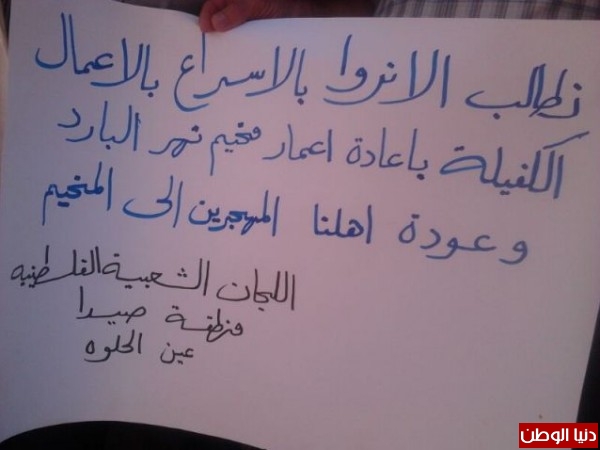 نطالب الانروا بالاسراع بالاعمال
الكفيلة باعادة اعمار مخيم نهر البارد
وعودة اهلنا المهجرين الى المخيم
اللجان الشعبية الفلسطينية
منطقة صيدا
عين الحلوه
دنيا الوطن